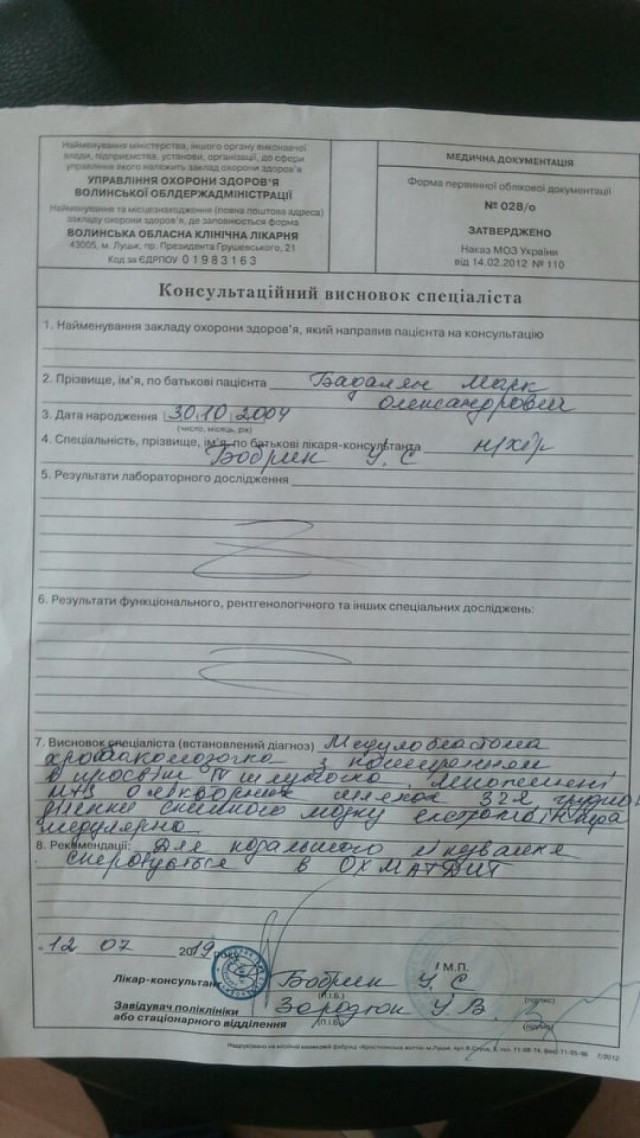 Найменування міністерства, іншого органу виконавчої
влади, підприємства, установи, організації, до сфери
управління якого належить заклад охорони здоров'я
УПРАВЛІННЯ ОХОРОНИ ЗДОРОВ'Я
ВОЛИНСЬКОЇ ОБЛДЕРЖАДМІНІСТРАЦІЇ
Найменування та місцезнаходження (повна поштова адреса)
закладу охорони здоров'я, де заповнюється форма
ВОЛИНСЬКА ОБЛАСНА КЛІНІЧНА ЛІКАРНЯ
43005, м. Луцьк, пр. Президента Грушевського, 21
Код за ЄДРПОУ 01983163
МЕДИЧНА ДОКУМЕНТАЦІЯ
Форма первинної облікової документації
№ 028/о
ЗАТВЕРДЖЕНО
Наказ МОЗ України
від 14.02.2012 № 110
Консультаційний висновок спеціаліста
1. Найменування закладу охорони здоров'я, який направив пацієнта на консультацію
2. Прізвище, ім'я, по батькові пацієнта Бадалян Марк
Олександрович
3. Дата народження 30.10.2004
(число, місяць, рік)
4. Спеціальність, прізвище, ім'я, по батькові лікаря-консультанта н/хір
5. Результати лабораторного дослідження
6. Результати функціонального, рентгенологічного та інших спеціальних досліджень:
7. Висновок спеціаліста (встановлений діагноз) Медулобластома
хробака мозочка з поширенням
в просвіт IV шлуночка
шляхом грудної
ділянки спинного мозку
медулярно
8. Рекомендації: Для подальшого лікування
скеровується в ОХМАТДИТ
12 07 2019 року
М.П.
Лікар-консультант
(П.І.Б.) (підпис)
Завідувач поліклініки
або стаціонарного відділення
(П.І.Б.) (підпис)